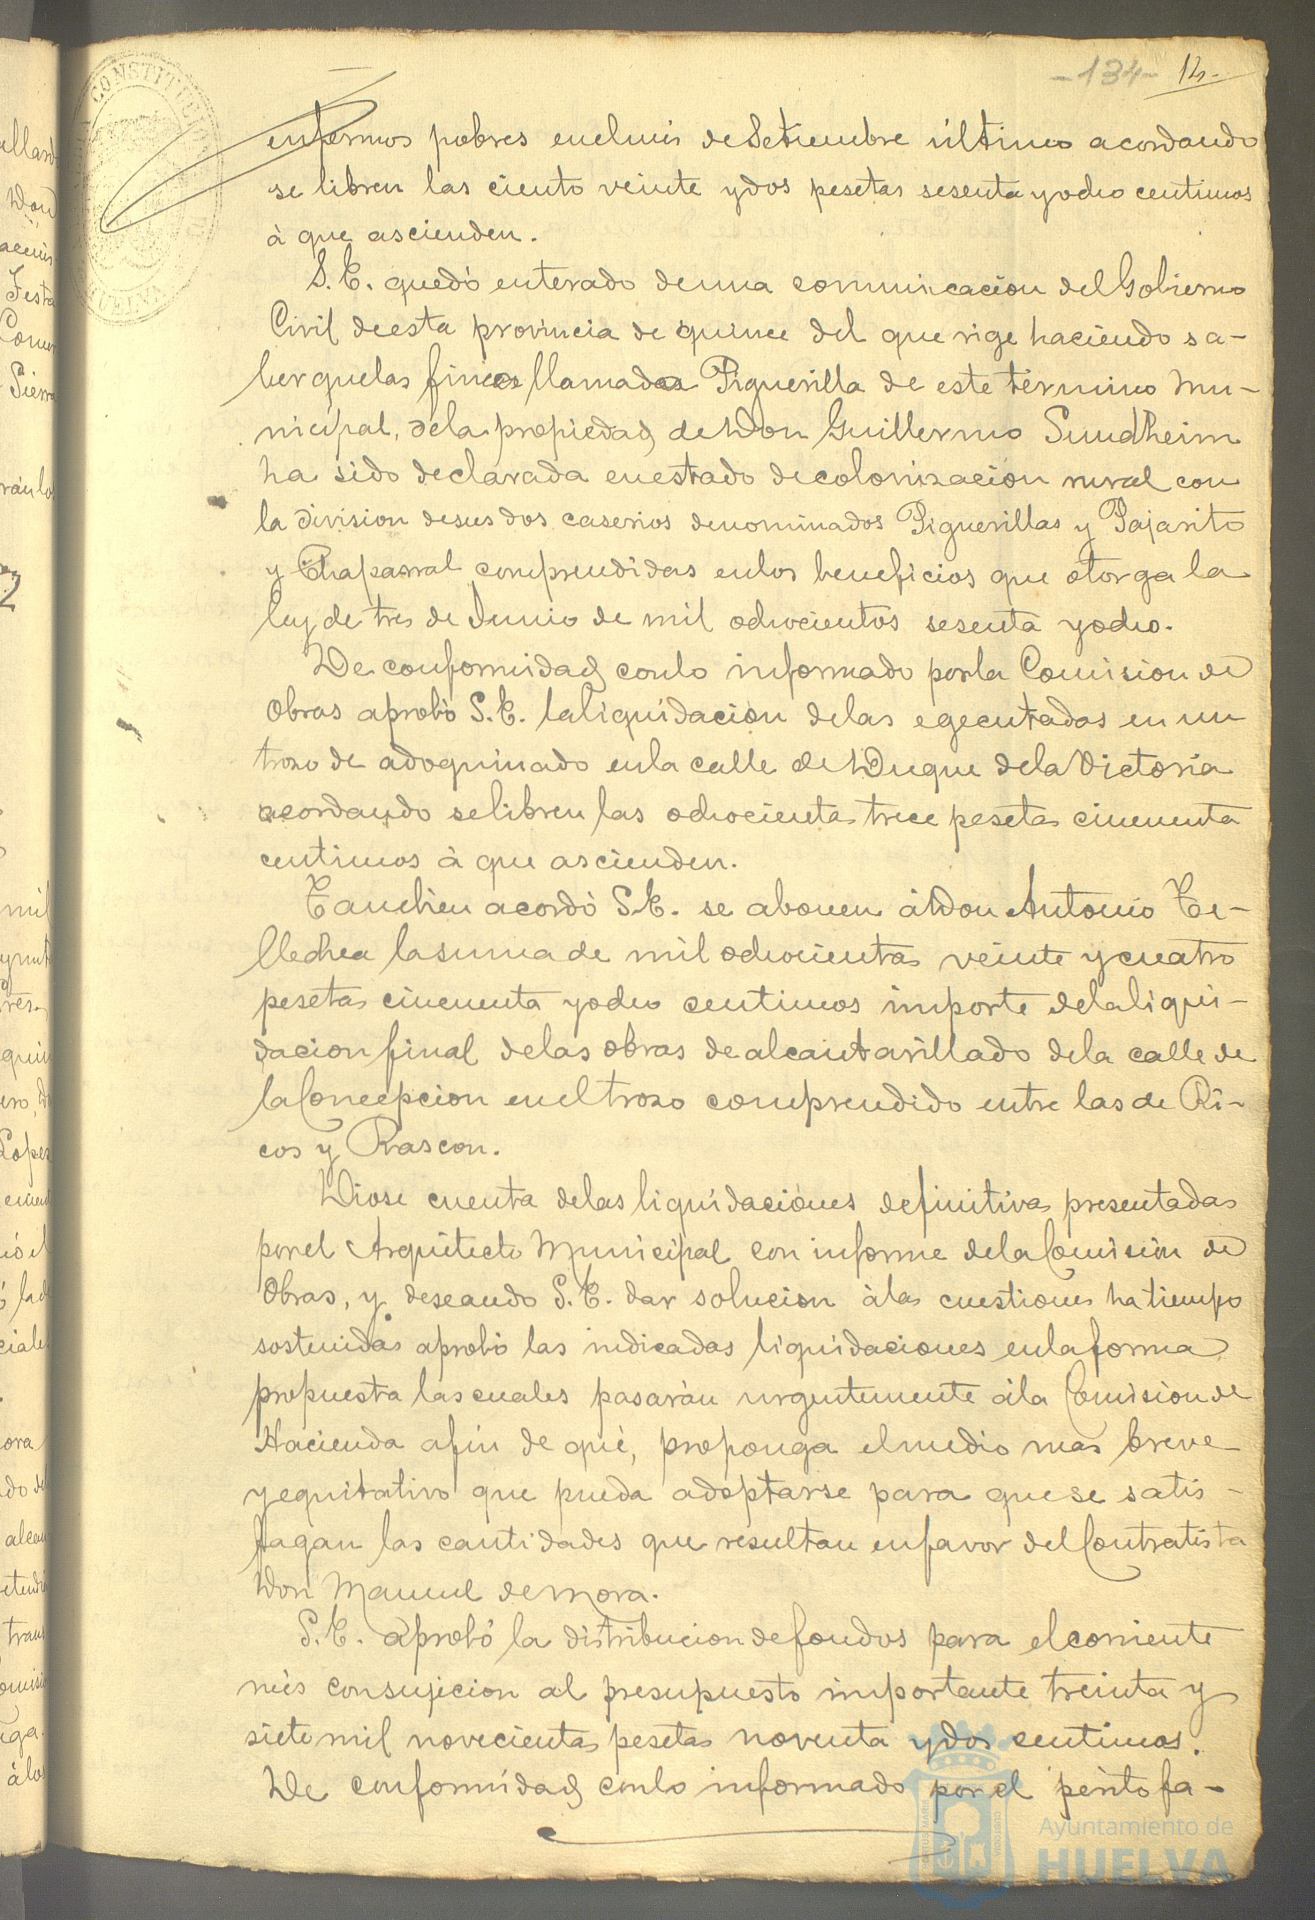 -134- 14-
CONSTITUCIO
HUELVA
enfermos pobres en el mes de Setiembre último acordando
se libren las ciento veinte y dos pesetas sesenta y ocho centimos
à que ascienden.
S. E. quedó enterado de una comunicacion del Gobierno
Civil de esta provincia de quince del que rige haciendo sa-
ber que las fincas llamadas Piguerilla de este término mu-
nicipal, de la propiedad de Don Guillermo Sundheim
ha sido declarada en estado de colonizacion rural con
la division de sus dos caserios denominados Piguerillas y Pajarito
y Chaparral comprendidas en los beneficios que otorga la
ley de tres de Junio de mil ochocientos sesenta y ocho.
De conformidad con lo informado por la Comision de
Obras aprobó S. E. la liquidacion de las egecutadas en un
trozo de adoquinado en la calle de Duque de la Victoria
acordando se libren las ochocientas trece pesetas cincuenta
centimos à que ascienden.
Tambien acordó S. E. se abonen á Don Antonio Te-
llechea la suma de mil ochocientas veinte y cuatro
pesetas cincuenta y ocho centimos importe de la liqui-
dacion final de las obras de alcantarillado de la calle de
la Concepcion en el trozo comprendido entre las de Ri-
cos y Rascon.
Diose cuenta de las liquidaciones definitivas presentadas
por el Arquitecto Municipal con informe de la Comisión de
Obras, y deseando S. E. dar solucion à las cuestiones ha tiempo
sostenidas aprobó las indicadas liquidaciones en la forma
propuesta las cuales pasarán urgentemente á la Comision de
Hacienda afin de qué, proponga el medio mas breve
y equitativo que pueda adoptarse para que se satis-
fagan las cantidades que resultan en favor del Contratista
Don Manuel de Mora.
S. E. aprobó la distribucion de fondos para el corriente
més con sujecion al presupuesto importante treinta y
siete mil novecientas pesetas noventa y dos centimos.
De conformidad con lo informado por el perito fa-
Ayuntamiento de
HUELVA